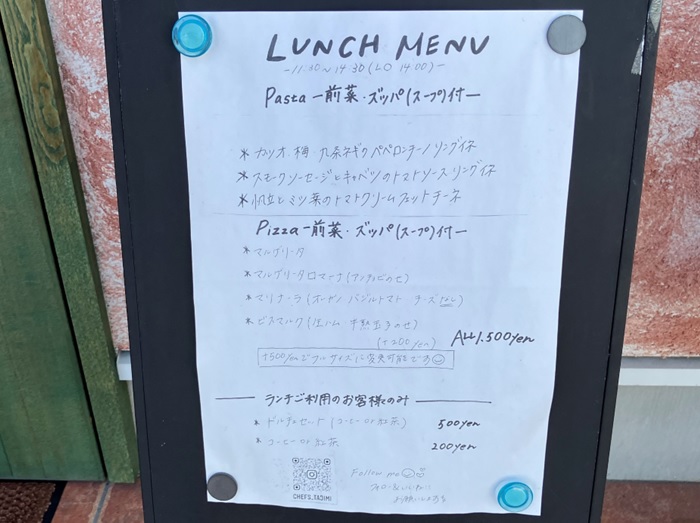 LUNCH MENU
-11:30~14:30(LO 14:00)-
Pasta -前菜・ズッパ(スープ)付-
*カツオ・梅・九条ネギのペペロンチーノ リングイネ
*スモークソーセージとキャベツのトマトソース リングイネ
*帆立とミツ葉のトマトクリーム フェットチーネ
Pizza -前菜・ズッパ(スープ)付-
*マルゲリータ
*マルゲリータロマーナ(アンチョビのせ)
*マリナーラ(オレガノ バジルトマト チーズなし)
*ビスマルク(生ハム 半熟玉子のせ)
(+200yen)
All 1.500yen
+500yenでフルサイズに変更可能です
ランチご利用のお客様のみ
*ドルチェセット(コーヒー or 紅茶) 500yen
*コーヒー or 紅茶 200yen
Follow me
フォロー&いいね!
お願いします
CHEFS.TASIMI